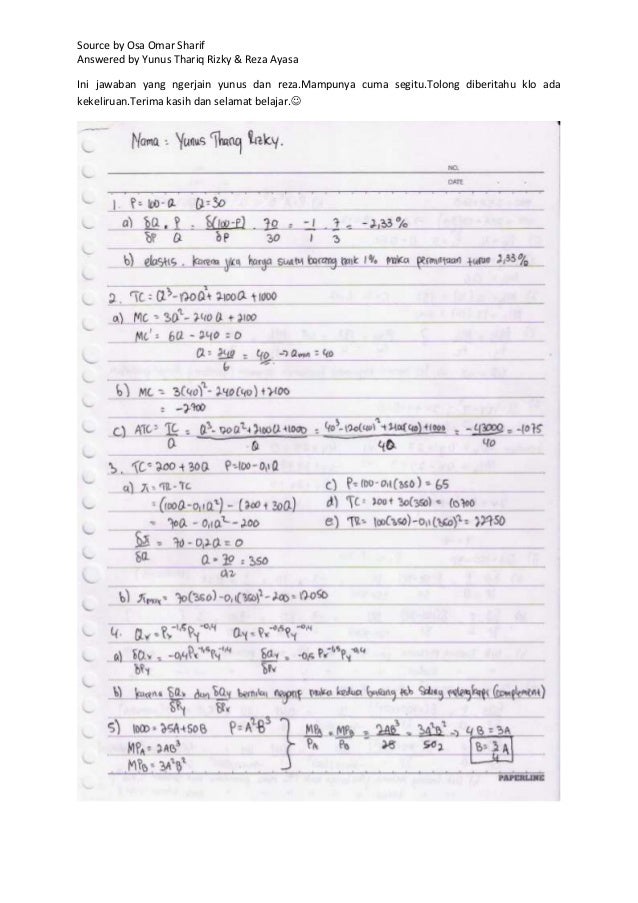 Source by Osa Omar Sharif
Answered by Yunus Thariq Rizky & Reza Ayasa
Ini jawaban yang ngerjain yunus dan reza.Mampunya cuma segitu.Tolong diberitahu klo ada
kekeliruan.Terima kasih dan selamat belajar.☺
Nama : Yunus Thariq Rizky.
NO.
DATE
1. P = 100-Q Q=30
a) δQ/δP . P/Q = δ(100-P)/δP . 70/30 = -1/1 . 7/3 = -2,33%
b) elastis, karena jika harga suatu barang naik 1% maka permintaan turun 2,33%
2. TC = Q³-120Q²+2100Q+1000
a) MC = 3Q²-240Q+2100
MC' = 6Q - 240 = 0
Q = 240/6 = 40 → Qmin = 40
b) MC = 3(40)²-240(40)+2100
= -2700
c) ATC = TC/Q = Q³-120Q²+2100Q+1000/Q = 40³-120(40)²+2100(40)+1000/40 = -43000/40 = -1075
3. TC = 200+30Q P=100-0,1Q
a) π = TR-TC
= (100Q-0,1Q²) - (200+30Q)
= 70Q - 0,1Q² - 200
δπ/δQ = 70 - 0,2Q = 0
Q = 70/0,2 = 350
b) πmax = 70(350)-0,1(350)²-200 = 12050
c) P = 100-0,1(350) = 65
d) TC = 200+30(350) = 10700
e) TR = 100(350)-0,1(350)² = 22750
4. Qx = Px^-1,5 Py^-0,4 Qy = Px^-0,5 Py^-0,4
a) δQx/δPy = -0,4Px^-1,5 Py^-1,4 δQy/δPx = -0,5 Px^-1,5 Py^-0,4
b) karena δQx/δPy dan δQy/δPx bernilai negatif maka kedua barang tsb saling melengkapi (complement)
5) 1000 = 25A+50B P=A²B³
MPA = 2AB³
MPB = 3A²B²
MPA/PA = MPB/PB = 2AB³/25 = 3A²B²/50 → 4B = 3A
B = 3/4 A
PAPERLINE